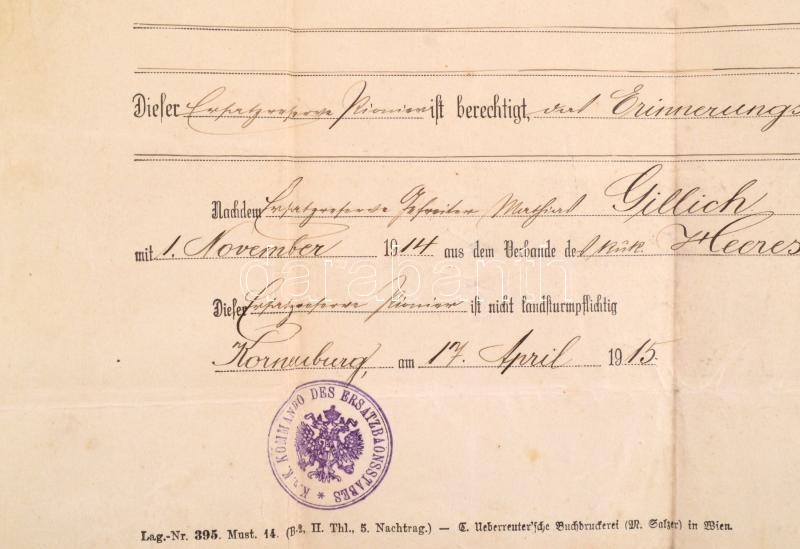 Dieser Ersatzreserve Pionier ist berechtigt, das Erinnerungs
Nachdem Ersatzreserve Gefreiter Mathias Gillich
mit 1. November 1914 aus dem Verbande des k.u.k. Heeres
darabanth
Dieser Ersatzreserve Pionier ist nicht landsturmpflichtig
Korneuburg, am 17. April 1915.
K.u.K. KOMMANDO DES ERSATZBAONSSTABES *
Lag.-Nr. 395. Must. 14. (B-2, II. Thl., 5. Nachtrag.) — C. Ueberreuter'sche Buchdruckerei (M. Salzer) in Wien.